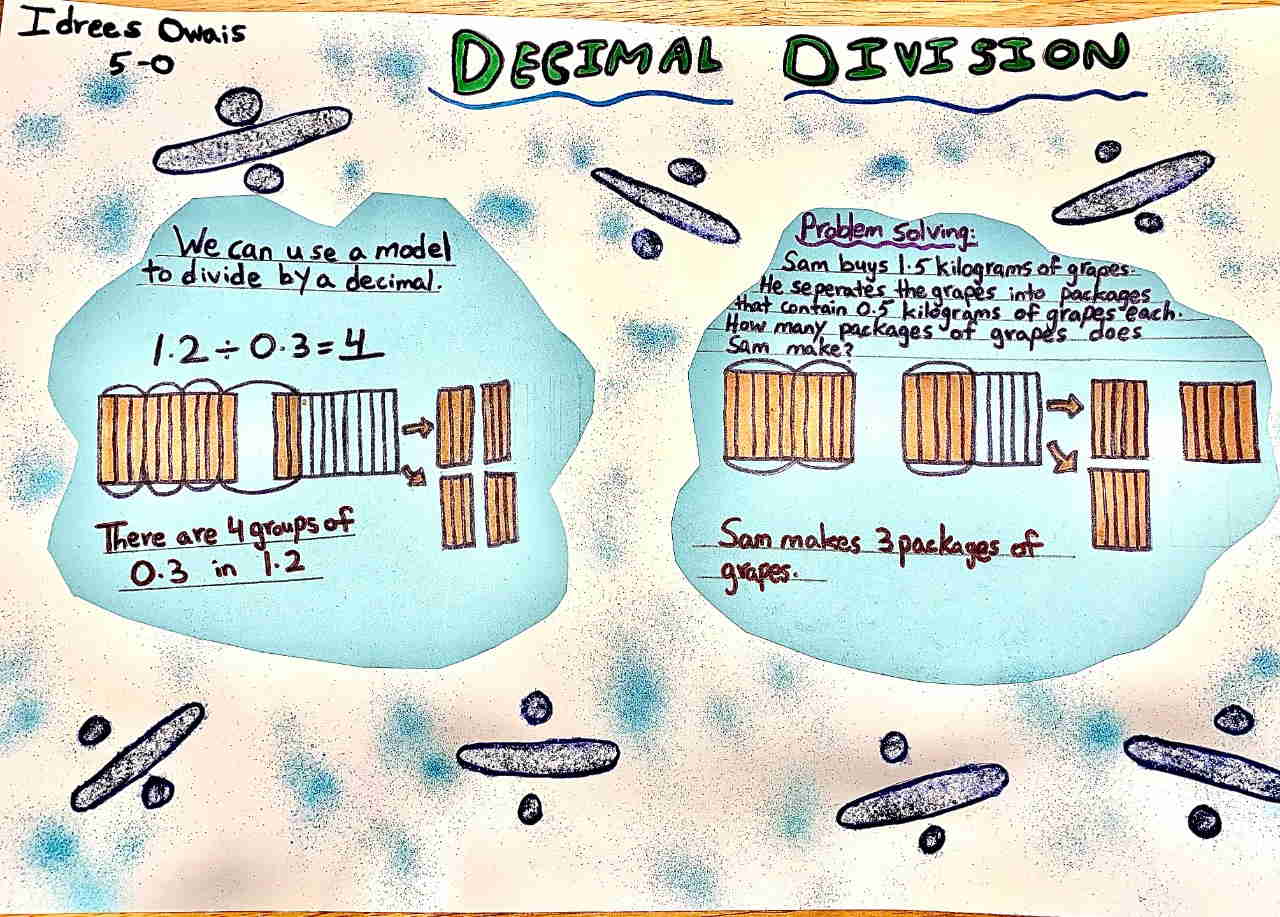 Idrees Owais
5-0
DECIMAL DIVISION
We can use a model
to divide by a decimal.
1.2 ÷ 0.3 = 4
There are 4 groups of
0.3 in 1.2
Problem solving:
Sam buys 1.5 kilograms of grapes.
He seperates the grapes into packages
that contain 0.5 kilograms of grapes each.
How many packages of grapes does
Sam make?
Sam makes 3 packages of
grapes.